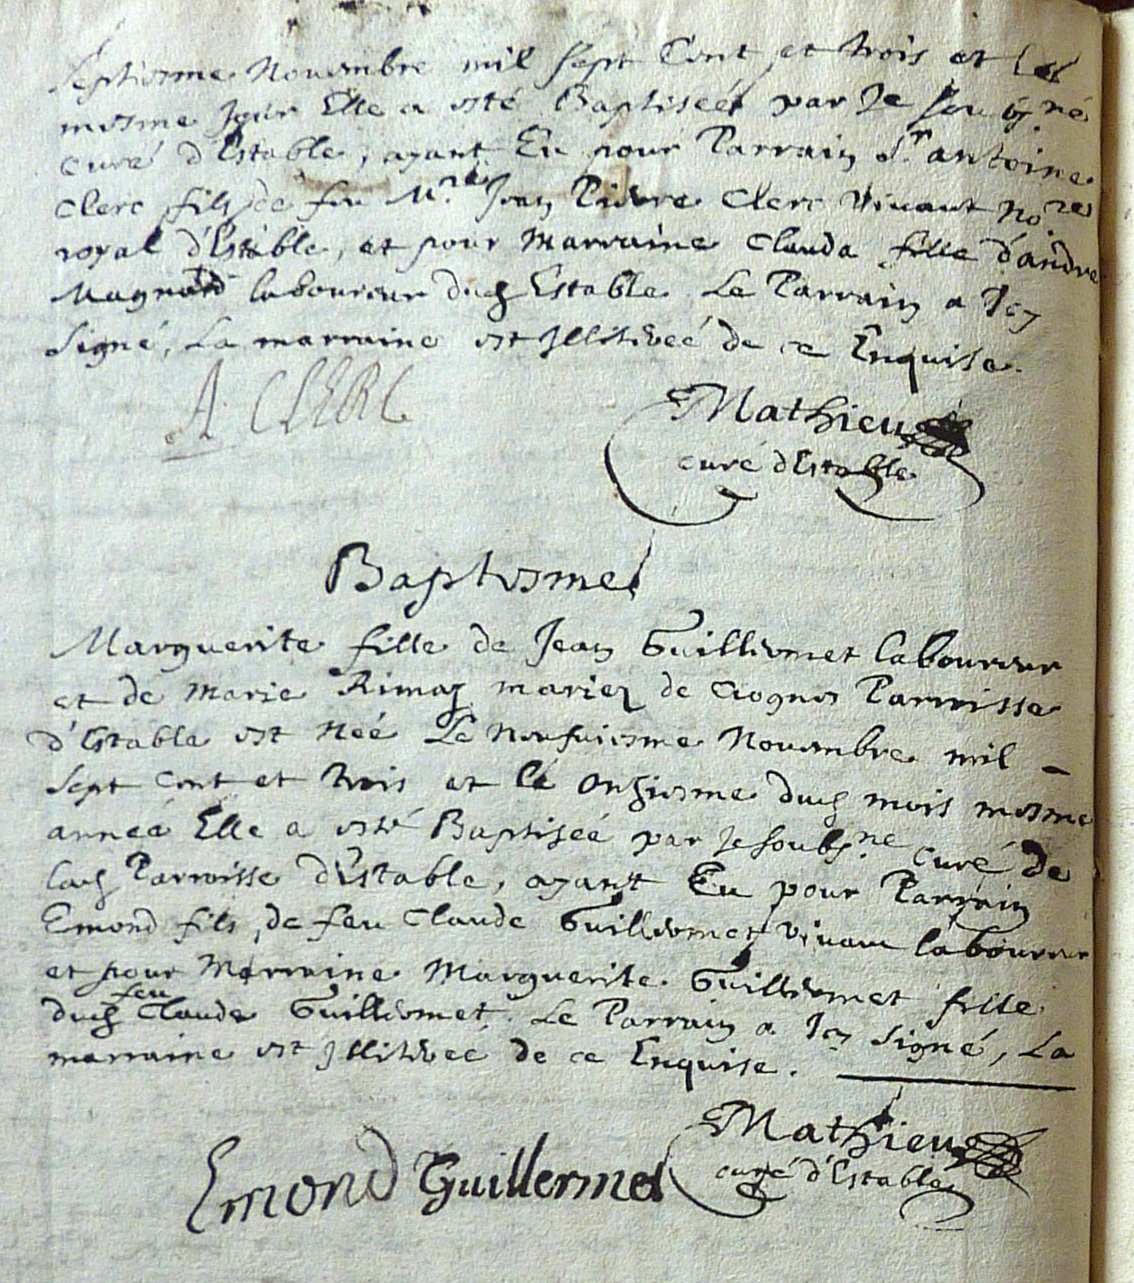 septiesme Novembre mil sept Cent et trois et le
mesme jour Elle a esté Baptiseé par Je sousigné
curé d'Estable, ayant Eu pour Parrain Sr. antoine
Clerc fils de feu Mre. Jean Pierre Clerc vivant Nore.
royal d'Estable, et pour Marraine Clauda fille d'andre
Magnard laboureur dud Estable. Le Parrain a Icy
signé, La marraine est Illitereé de ce Enquise.
A CLERC
Mathieu
curé d'Estable
Baptesme
Marguerite fille de Jean Guillermet laboureur
et de Marie mariez de Parroisse
d'Estable est Neé Le Neufviesme Novembre mil -
sept cent et trois et le Onziesme dud mois mesme
anneé Elle a esté Baptiseé par Je soubs.ne Curé de
lad Parroisse d'Estable, ayant Eu pour Parrain
Emond fils de feu Claude Guillermet vivant laboureur
et pour Marraine Marguerite Guillermet fille
dud feu Claude Guillermet. Le Parrain a Icy signé, La
marraine est Illitereé de ce Enquise.
Mathieu
curé d'Estable
Emond Guillermet